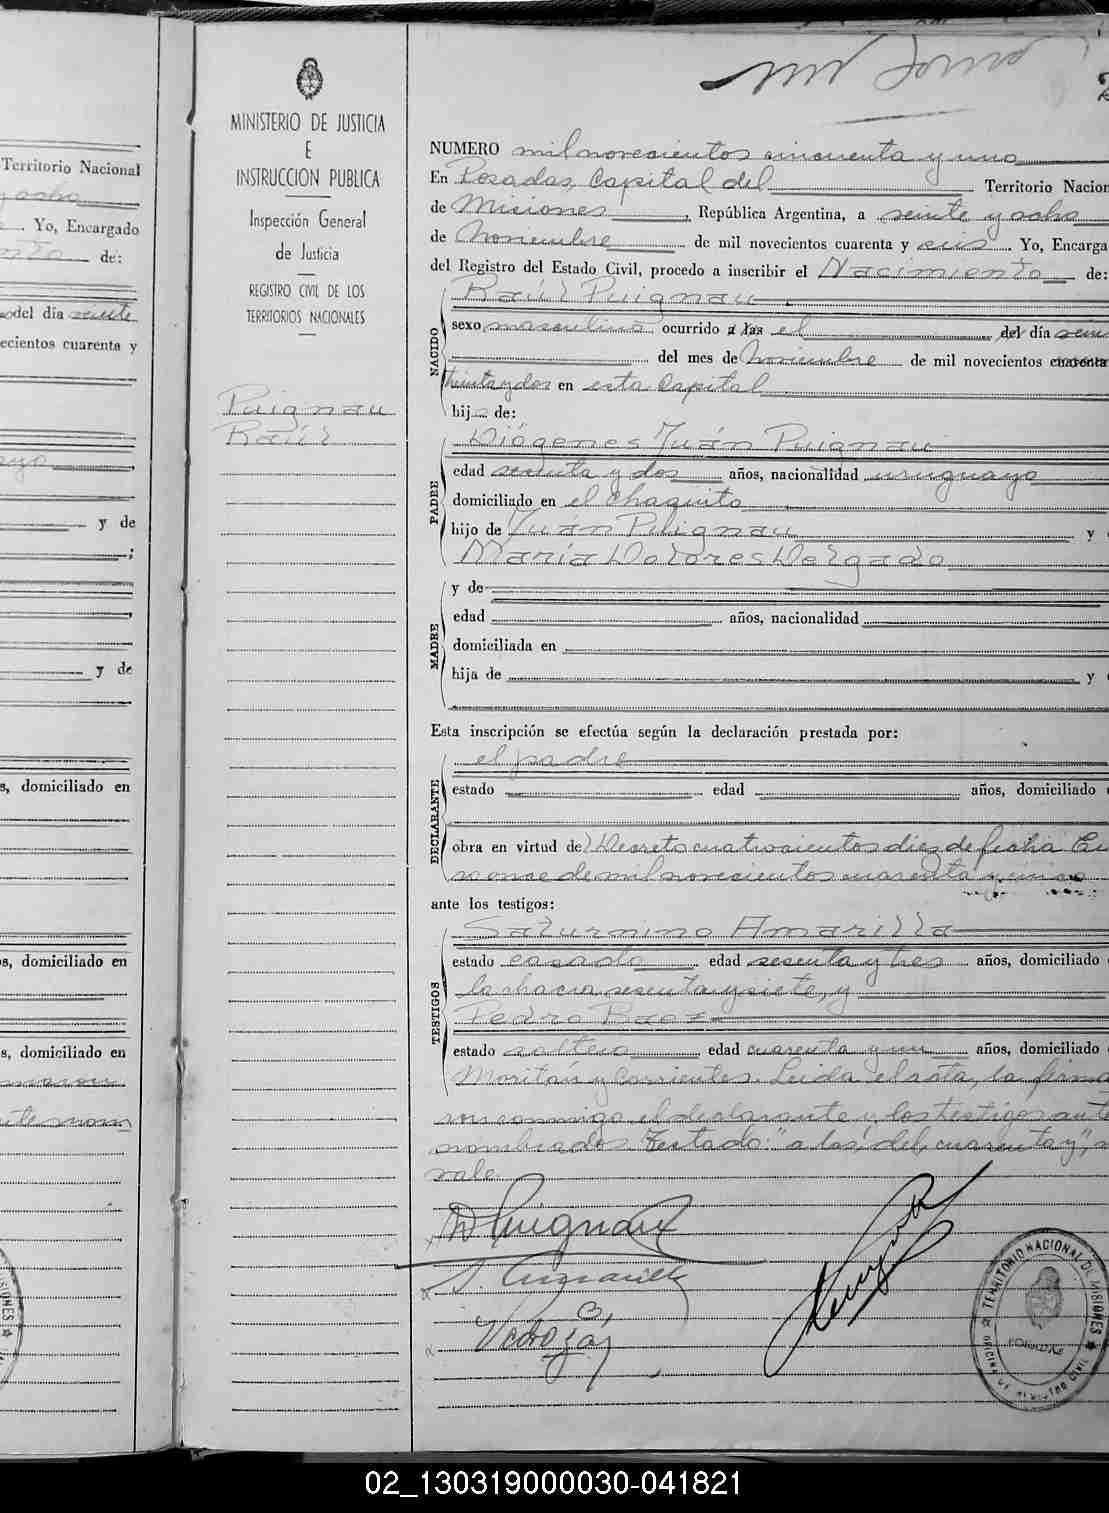 Territorio Nacional
y ocho
Yo, Encargado
de:
del día veinte
ecientos cuarenta y
y de
y de
s, domiciliado en
s, domiciliado en
s, domiciliado en
MINISTERIO DE JUSTICIA
E
INSTRUCCION PUBLICA
Inspección General
de Justicia
REGISTRO CIVIL DE LOS
TERRITORIOS NACIONALES
Puignau
Raúl
NUMERO mil novecientos cincuenta y uno
En Posadas, Capital del Territorio Nacion
de Misiones, República Argentina, a veinte y ocho
de Noviembre de mil novecientos cuarenta y seis. Yo, Encarga
del Registro del Estado Civil, procedo a inscribir el Nacimiento de:
NACIDO
Raúl Puignau
sexo masculino ocurrido a las el del día vein
del mes de Noviembre de mil novecientos cuarenta
treinta y dos en esta Capital
hijo de:
PADRE
Diógenes Juán Puignau
edad sesenta y dos años, nacionalidad uruguayo
domiciliado en el Chaquito
hijo de Juán Puignau y
María Dolores Delgado
MADRE
y de
edad años, nacionalidad
domiciliada en
hija de y
Esta inscripción se efectúa según la declaración prestada por:
DECLARANTE
el padre
estado edad años, domiciliado
obra en virtud del Decreto cuatrocientos diez de fecha En
ro once de mil novecientos cuarenta y seis
ante los testigos:
TESTIGOS
Saturnino Amarilla
estado casado edad sesenta y tres años, domiciliado
la chacra sesenta y siete, y
Pedro Baez
estado soltero edad cuarenta y un años, domiciliado
y Corrientes. Leida el acta, la firma
con conmigo el declarante y los testigos ante
nombrados. Testado: "a las, del, cuarenta y",
vale.
D Puignau
S. Amarilla
TERRITORIO NACIONAL DE MISIONES
OFICINA DE REGISTRO CIVIL
POSADAS
02_130319000030-041821